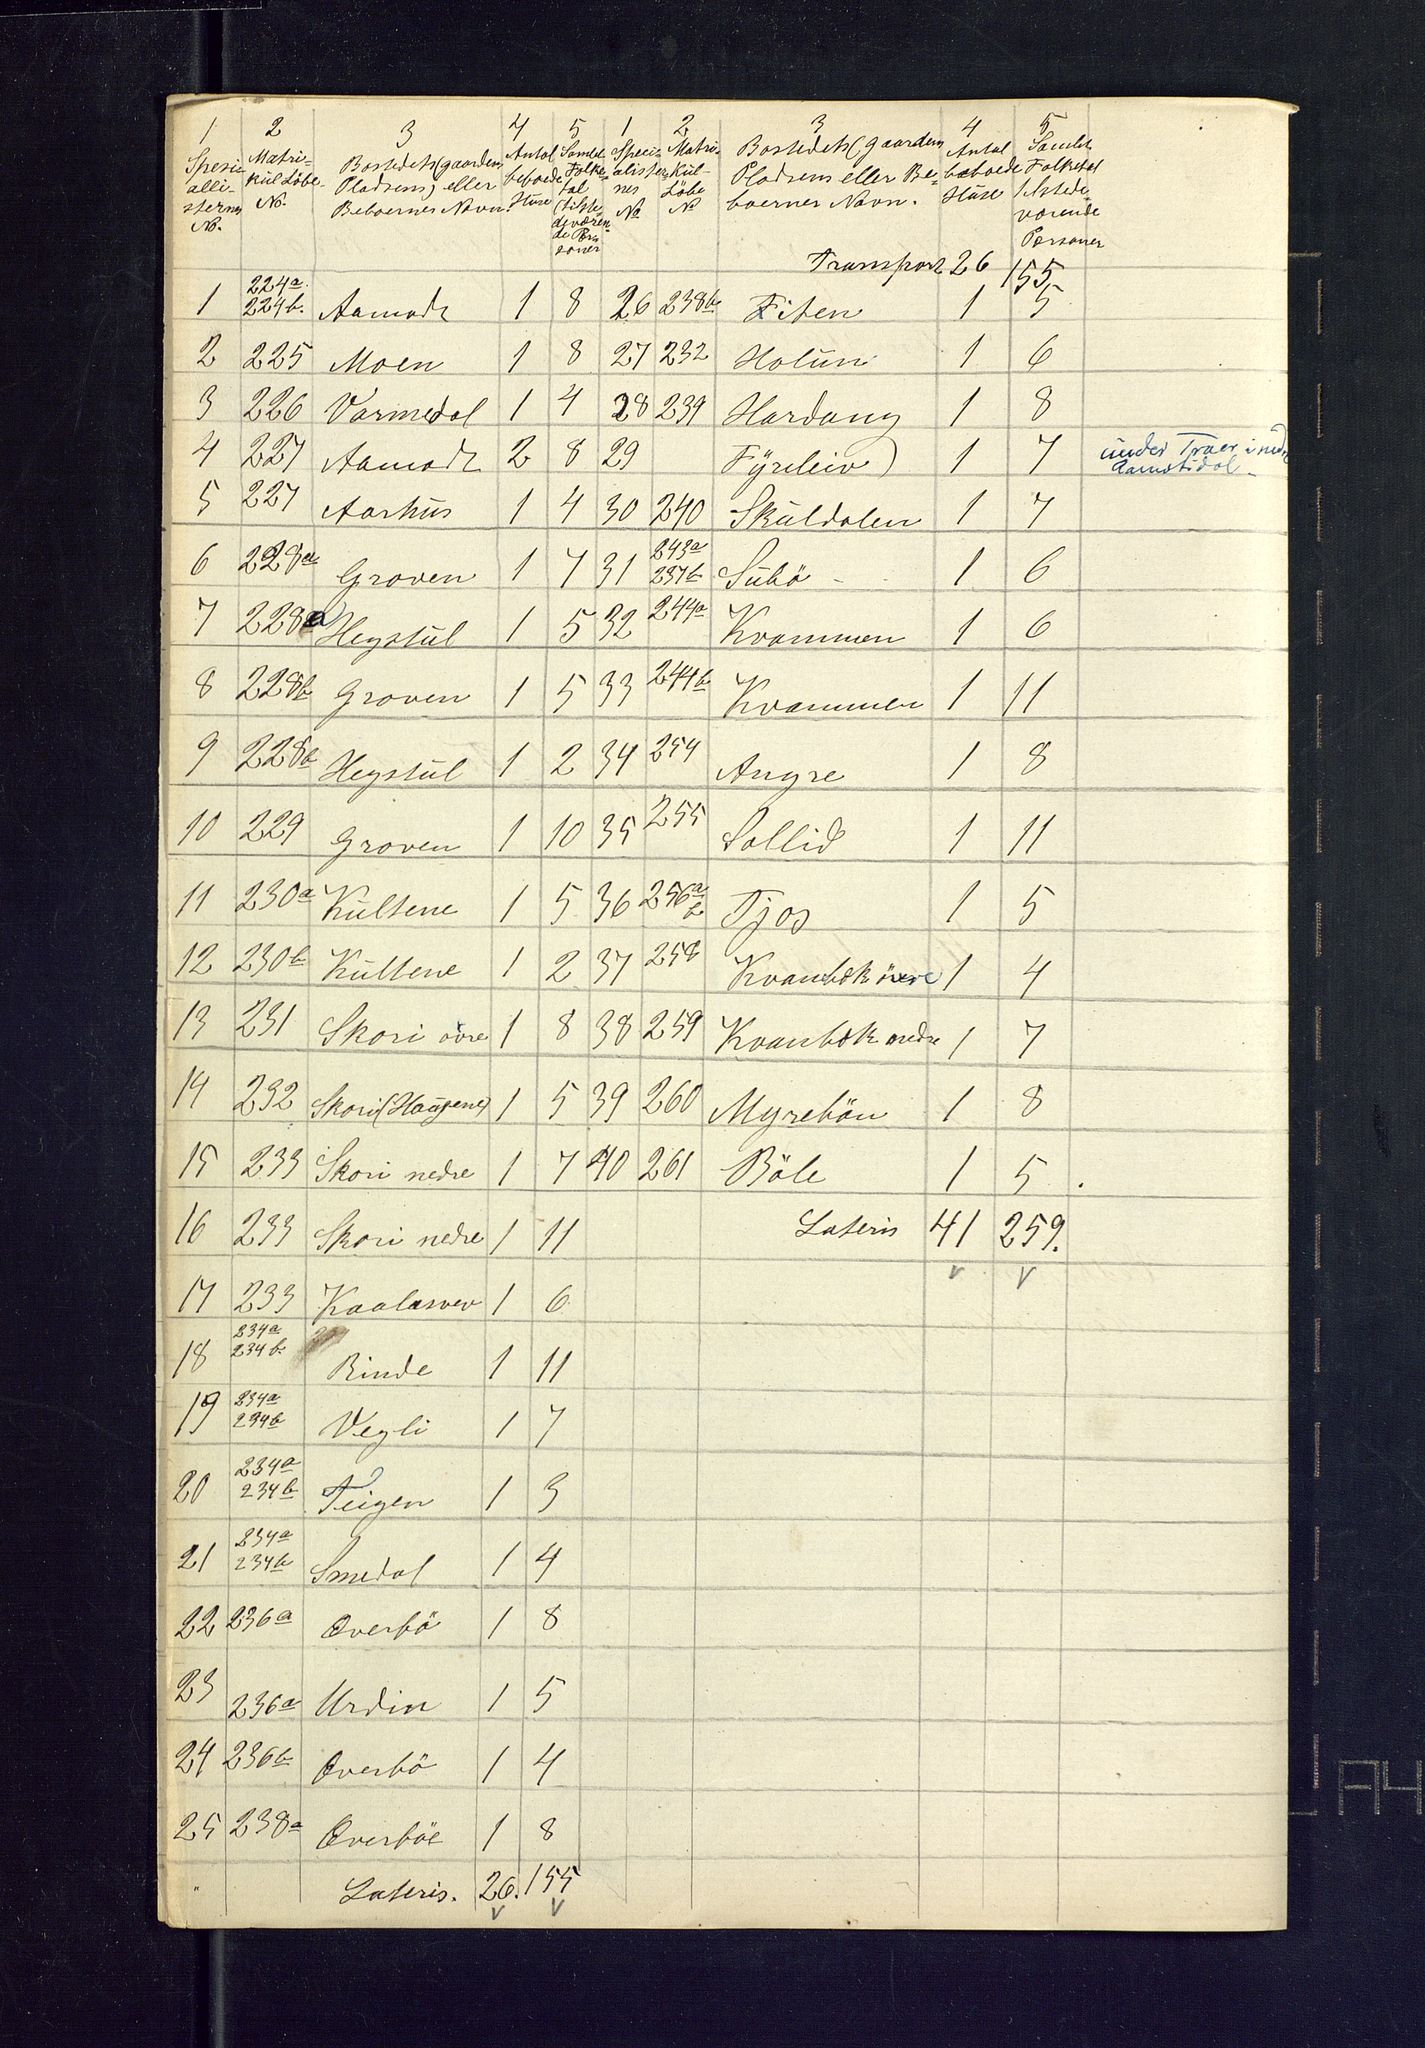 1 2 3 4 5 1 2 3 4 5
Speci- Matri- Bostedets (gaardens Antal Samlet Speci- Matri- Bostedets (gaardens Antal Samlet
alli- kul Löbe- Pladsens) eller beboede Folke- alisternes kul- Pladsens eller Be- beboede Folketal
sternes No. Beboernes Navn. Huse tal No Löbe boernes Navn. Huse (tilstede-
No. (tilste- No værende
deværen- Personer
de Per-
soner
Transport 26 155
1 224a 224b. Aamodt 1 8 26 238b Fiten 1 5
2 225 Moen 1 8 27 232 Holun 1 6
3 226 Varmedal 1 4 28 239 Hardang 1 8
4 227 Aamodt 2 8 29 Fyrileiv) 1 7 under Traer i nedre
Aamotsdal
5 227 Aarhus 1 4 30 240 Skuldalen 1 7
6 228a Groven 1 7 31 243a 237b Subö 1 6
7 228a Hegstul 1 5 32 244a Kvammen 1 6
8 228b Groven 1 5 33 244b Kvammen 1 11
9 228b Hegstul 1 2 34 254 Angre 1 8
10 229 Groven 1 10 35 255 Sollid 1 11
11 230a Kultene 1 5 36 256a b Tjos 1 5
12 230b Kultene 1 2 37 258 Kvanbæk övre 1 4
13 231 Skori övre 1 8 38 259 Kvanbæk nedre 1 7
14 232 Skori (Haugene) 1 5 39 260 Myrebön 1 8
15 233 Skori nedre 1 7 40 261 Böle 1 5.
16 233 Skori nedre 1 11 Lateris 41 259.
17 233 Kaalasvev 1 6
18 234a 234b. Rinde 1 11
19 234a 234b Vegli 1 7
20 234a 234b Teigen 1 3
21 234a 234b Smedal 1 4
22 236a Overbö 1 8
23 236a Urdin 1 5
24 236b Overbö 1 4
25 238a Overböe 1 8
Lateris. 26. 155